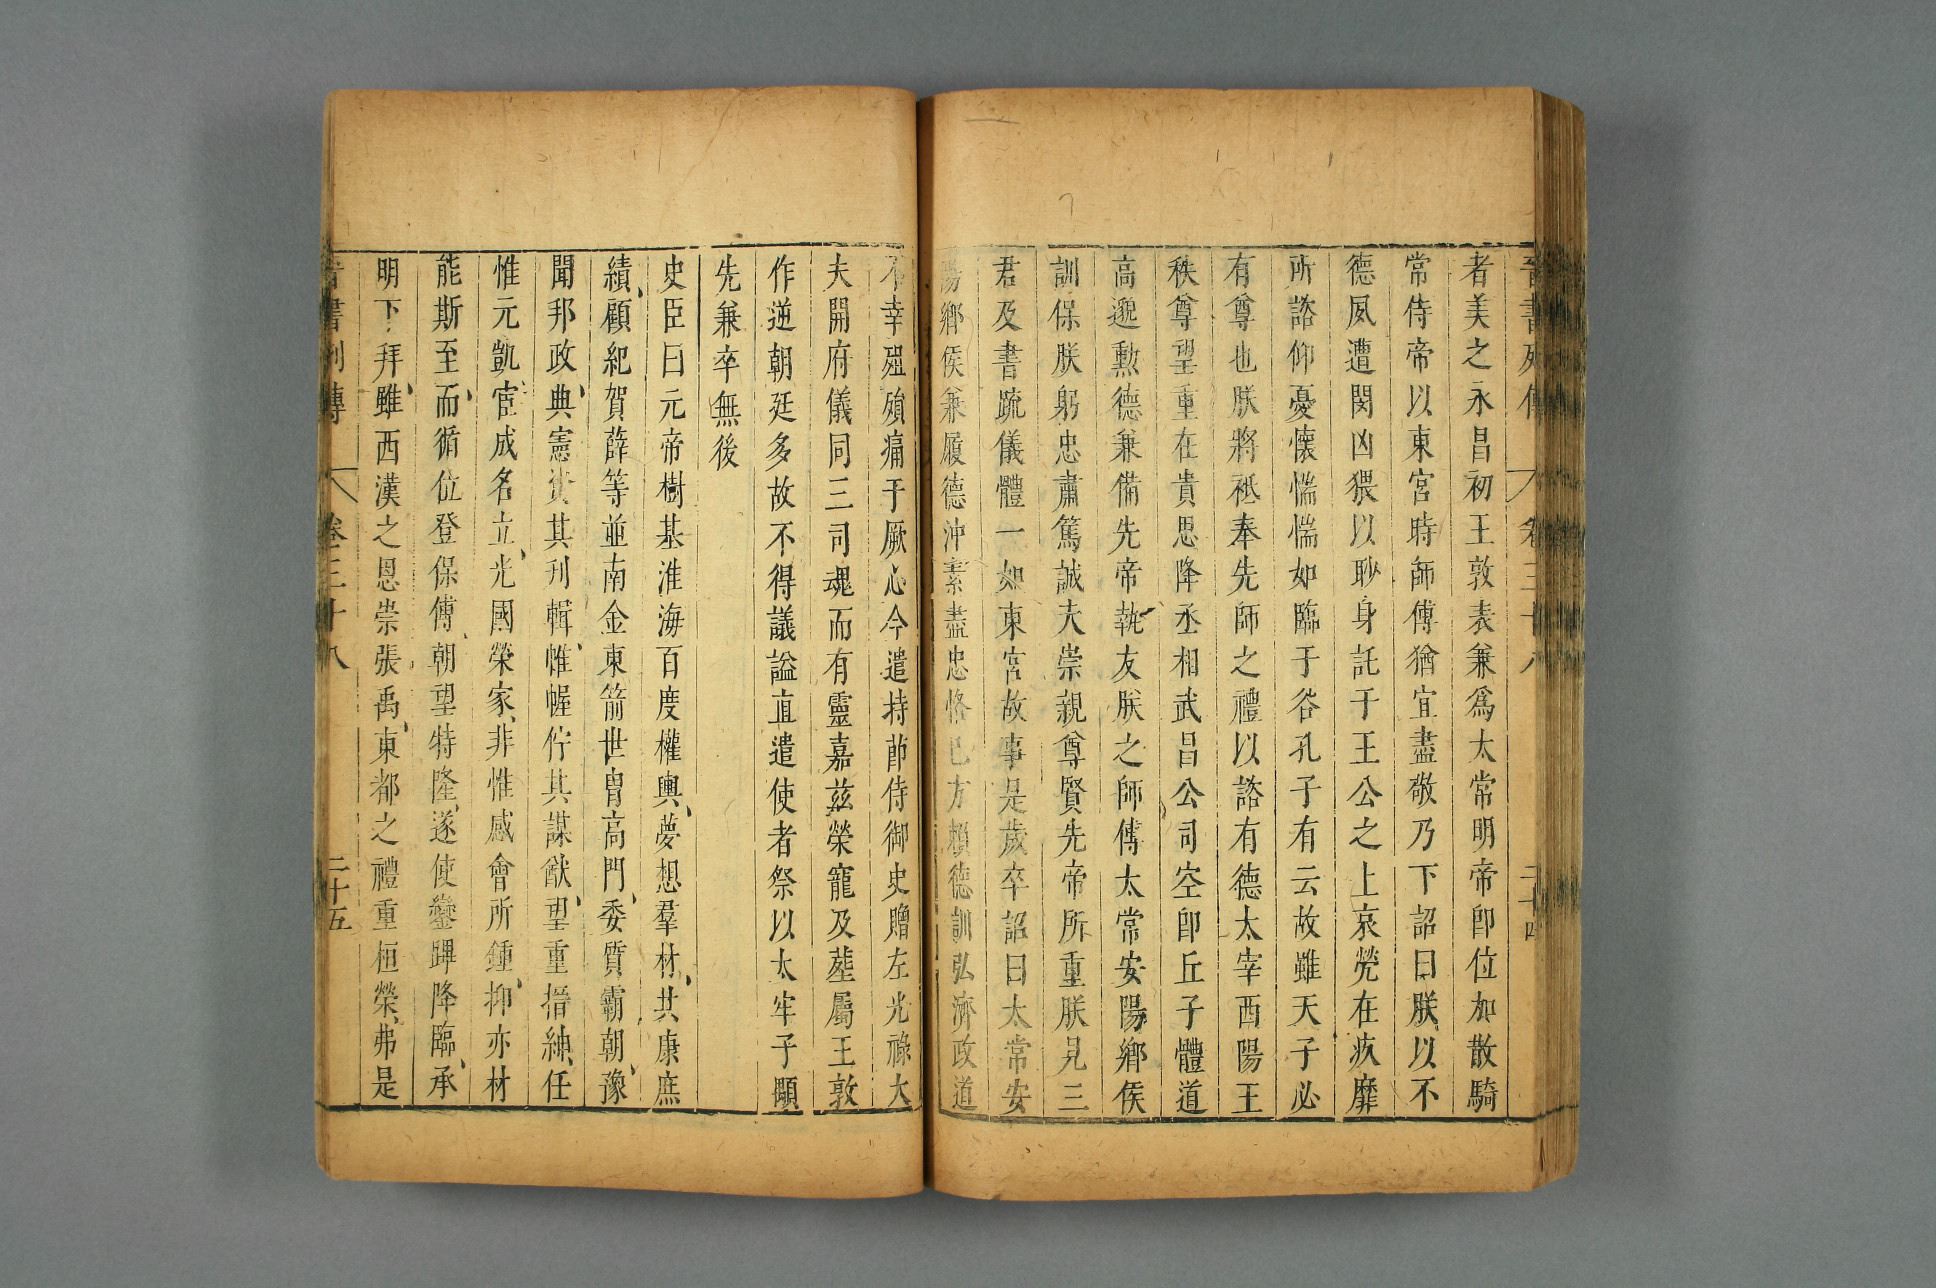 晉書列傳 卷三十八 二十四
者美之永昌初王敦表兼爲太常明帝卽位加散騎
常侍帝以東宮時師傅猶宜盡敬乃下詔曰朕以不
德夙遭閔凶猥以眇身託于王公之上哀煢在疚靡
所諮仰憂懷惴惴如臨于谷孔子有云故雖天子必
有尊也朕將祗奉先師之禮以諮有德太宰西陽王
秩尊望重在貴思降丞相武昌公司空卽丘子體道
高邈勲德兼備先帝執友朕之師傅太常安陽鄉侯
訓保朕躬忠肅篤誠夫崇親尊賢先帝所重朕見三
君及書䟽儀體一如東宮故事是歲卒詔曰太常安
陽鄉侯兼履德沖素盡忠恪己方賴德訓弘濟政道
不幸殂殞痛于厥心今遣持節侍御史贈左光祿大
夫開府儀同三司魂而有靈嘉茲榮寵及塟屬王敦
作逆朝廷多故不得議謚直遣使者祭以太牢子顒
先兼卒無後
史臣曰元帝樹基淮海百度權輿夢想羣材共康庶
績顧紀賀薛等並南金東箭世胄高門委質霸朝豫
聞邦政典憲資其刋輯帷幄佇其謀猷望重搢紳任
惟元凱宦成名立光國榮家非惟感會所鍾抑亦材
能斯至而循位登保傅朝望特隆遂使鑾蹕降臨承
明下拜雖西漢之恩崇張禹東都之禮重桓榮弗是
晉書列傳 卷三十八 二十五